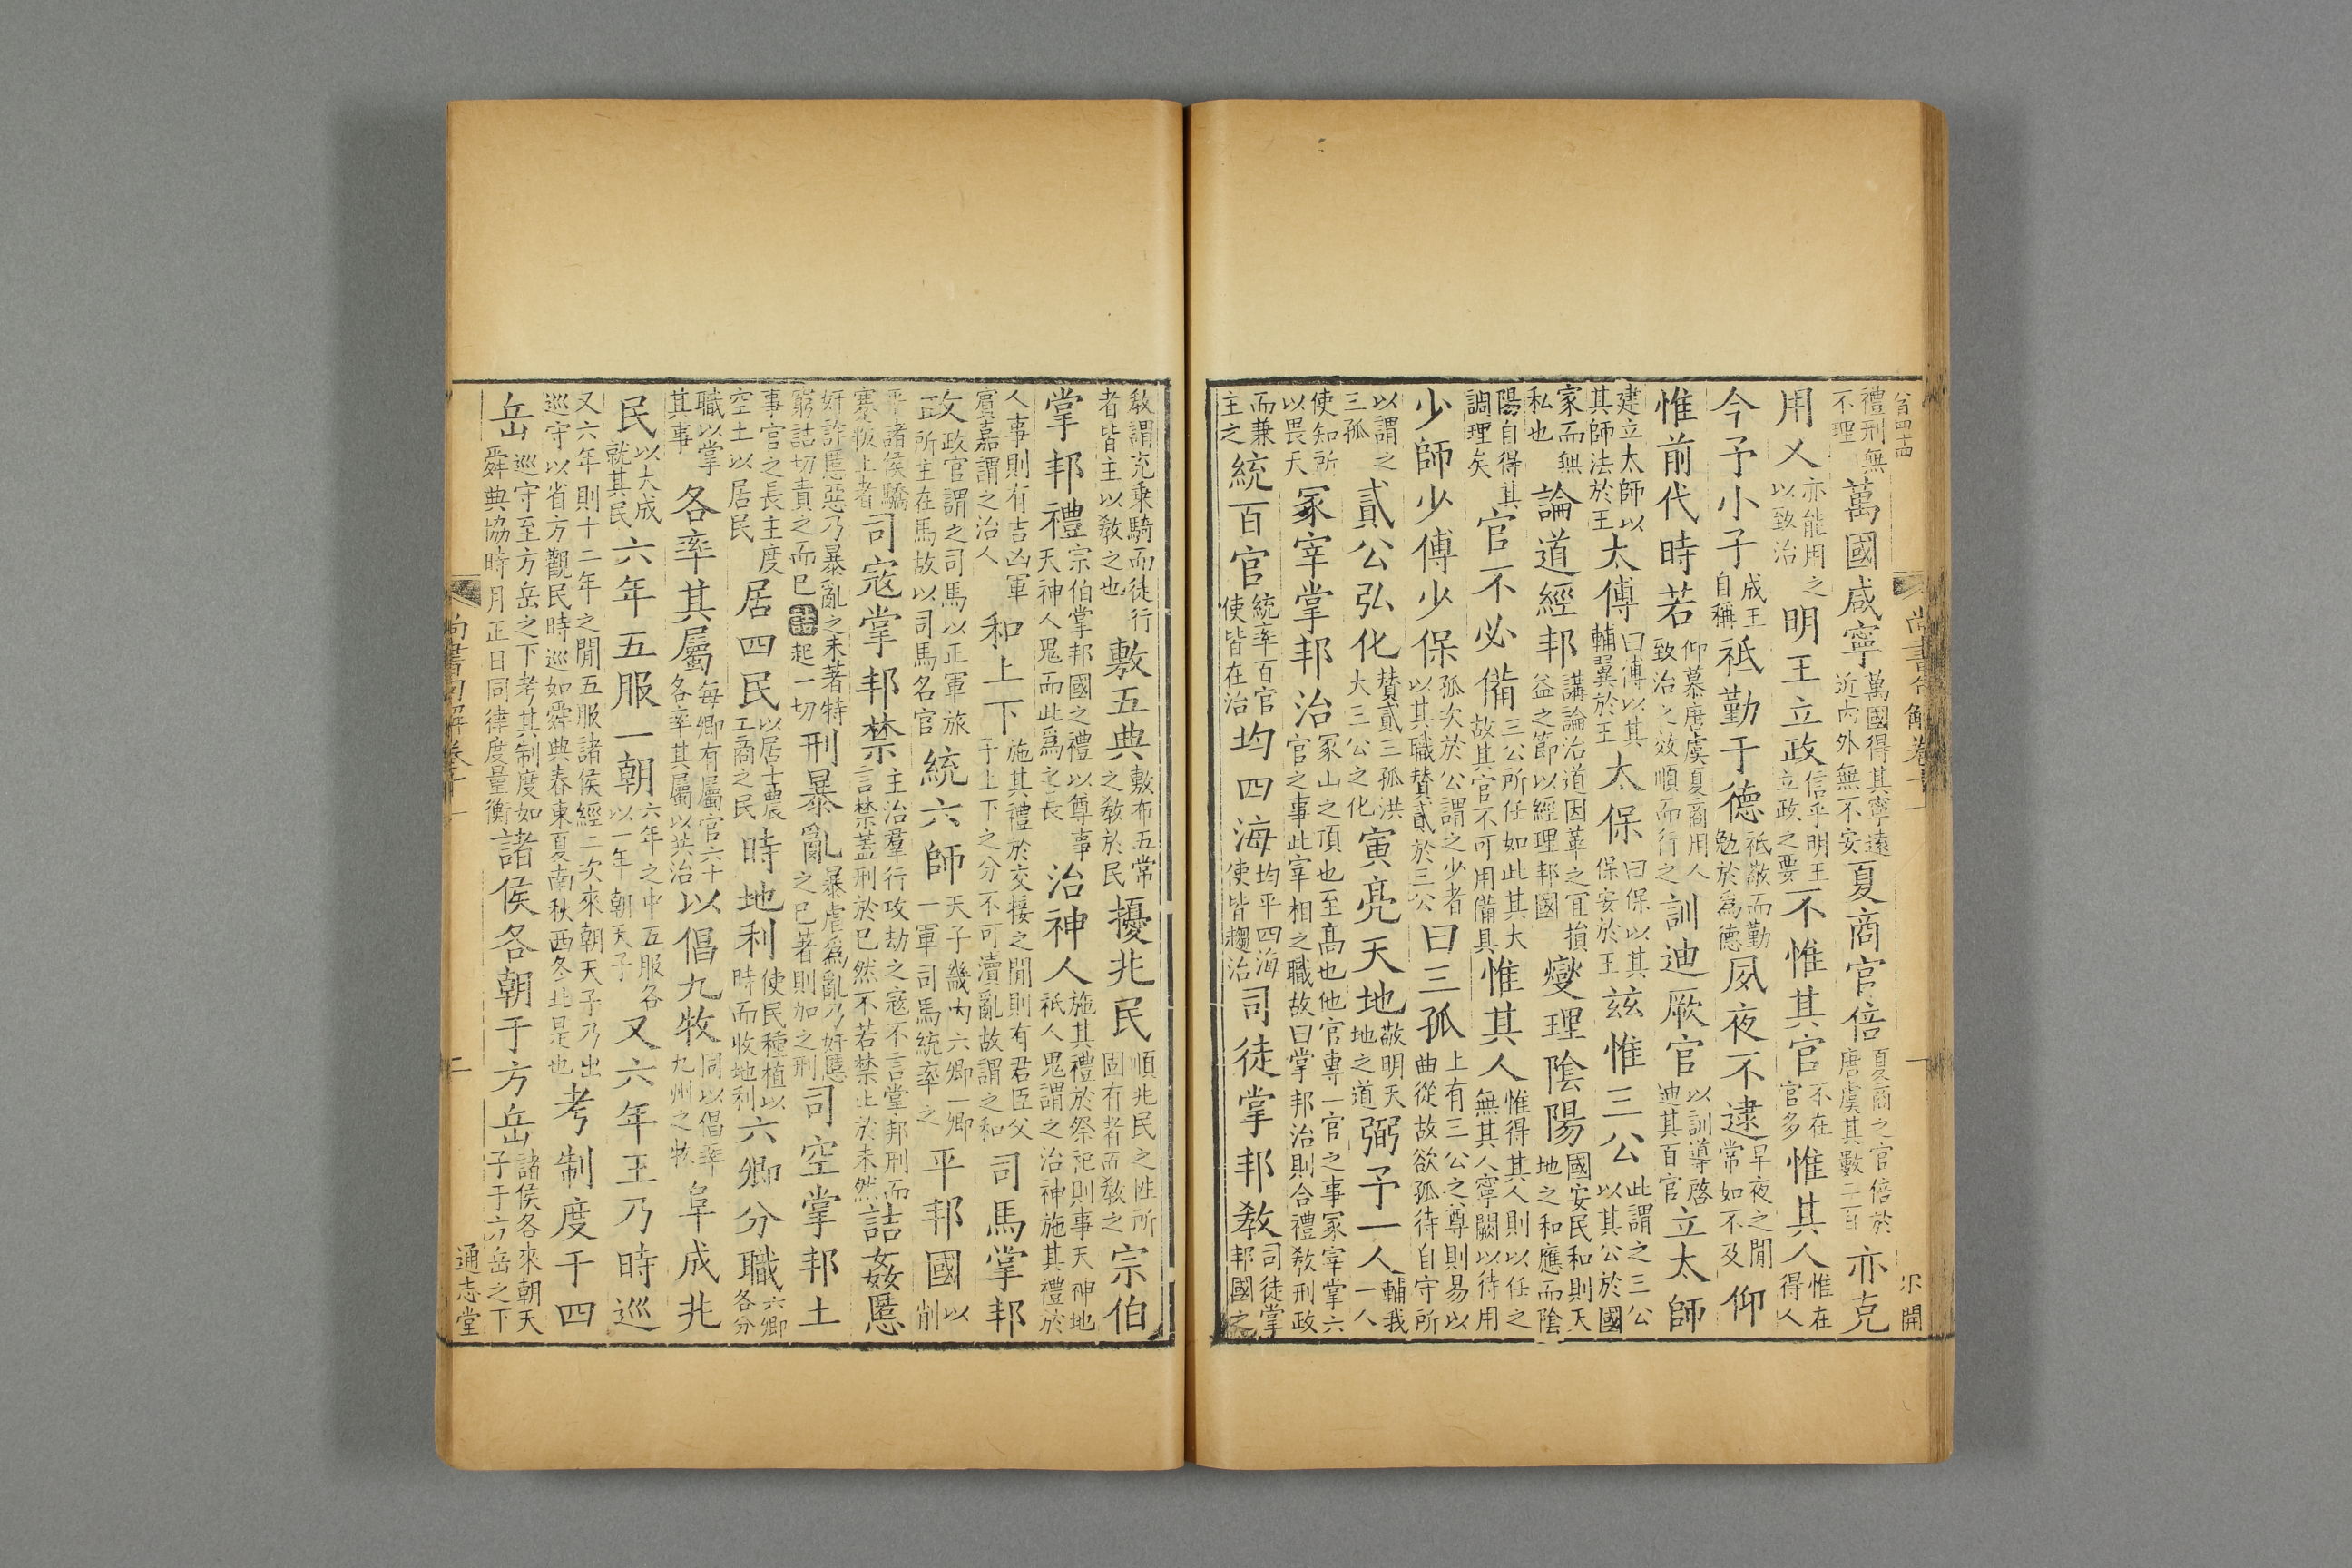 禮刑無不理萬國咸寧萬國得其寧遠近內外無不安夏商官倍夏商之官倍於唐虞其數二百亦克
用乂亦能用之以致治明王立政信乎明王立政之要不惟其官不在官多惟其人惟在得人
今予小子成王自稱祗勤于德祗敬而勤勉於爲德夙夜不逮早夜之閒常如不及仰
惟前代時若仰慕唐虞夏商用人致治之效順而行之訓迪厥官以訓導啓迪其百官立太師
建立太師以其師法於王太傅曰傅以其輔翼於王太保曰保以其保安於王茲惟三公此謂之三公以其公於國
家而無私也論道經邦講論治道因革之宜損益之節以經理邦國燮理陰陽國安民和則天地之和應而陰
陽自得其調理矣官不必備三公所任如此其大故其官不可用備具惟其人惟得其人則以任之無其人寧闕以待用
少師少傅少保孤次於公謂之少者以其職贊貳於三公曰三孤上有三公之尊則易以曲從故欲孤待自守所
以謂之三孤貳公弘化贊貳三孤洪大三公之化寅亮天地敬明天地之道弼予一人輔我一人
使知所以畏天冢宰掌邦治冢山之頂也至高也他官專一官之事冢宰掌六官之事此宰相之職故曰掌邦治則合禮敎刑政
而兼主之統百官統率百官使皆在治均四海均平四海使皆趨治司徒掌邦敎司徒掌邦國之
敎謂充乗騎而徒行者皆主以敎之也敷五典敷布五常之敎於民擾兆民順兆民之性所固有者而敎之宗伯
掌邦禮宗伯掌邦國之禮以尊事天神人鬼而此爲之長治神人施其禮於祭祀則事天神地祇人鬼謂之治神施其禮於
人事則有吉凶軍賓嘉謂之治人和上下施其禮於交接之閒則有君臣父子上下之分不可瀆亂故謂之和司馬掌邦
政政官謂之司馬以正軍旅所主在馬故以司馬名官統六師天子畿內六卿一卿一軍司馬統率之平邦國以削
平諸侯驕蹇叛上者司寇掌邦禁主治羣行攻劫之寇不言掌邦刑而言禁蓋刑於已然不若禁止於未然詰姦慝
奸詐慝惡乃暴亂之未著特窮詰切責之而已詰起一切刑暴亂暴虐爲亂乃奸慝之已著則加之刑司空掌邦土
事官之長主度空土以居民居四民以居士農工商之民時地利使民種植以時而收地利六卿分職六卿各分
職以掌其事各率其屬每卿有屬官六十各率其屬以共治以倡九牧同以倡率九州之牧阜成兆
民以大成就其民六年五服一朝六年之中五服各以一年朝天子又六年王乃時巡
又六年則十二年之閒五服諸侯經二次來朝天子乃出巡守以省方觀民時巡如舜典春東夏南秋西冬北是也考制度于四
岳巡守至方岳之下考其制度如舜典協時月正日同律度量衡諸侯各朝于方岳諸侯各來朝天子于方岳之下
通志堂